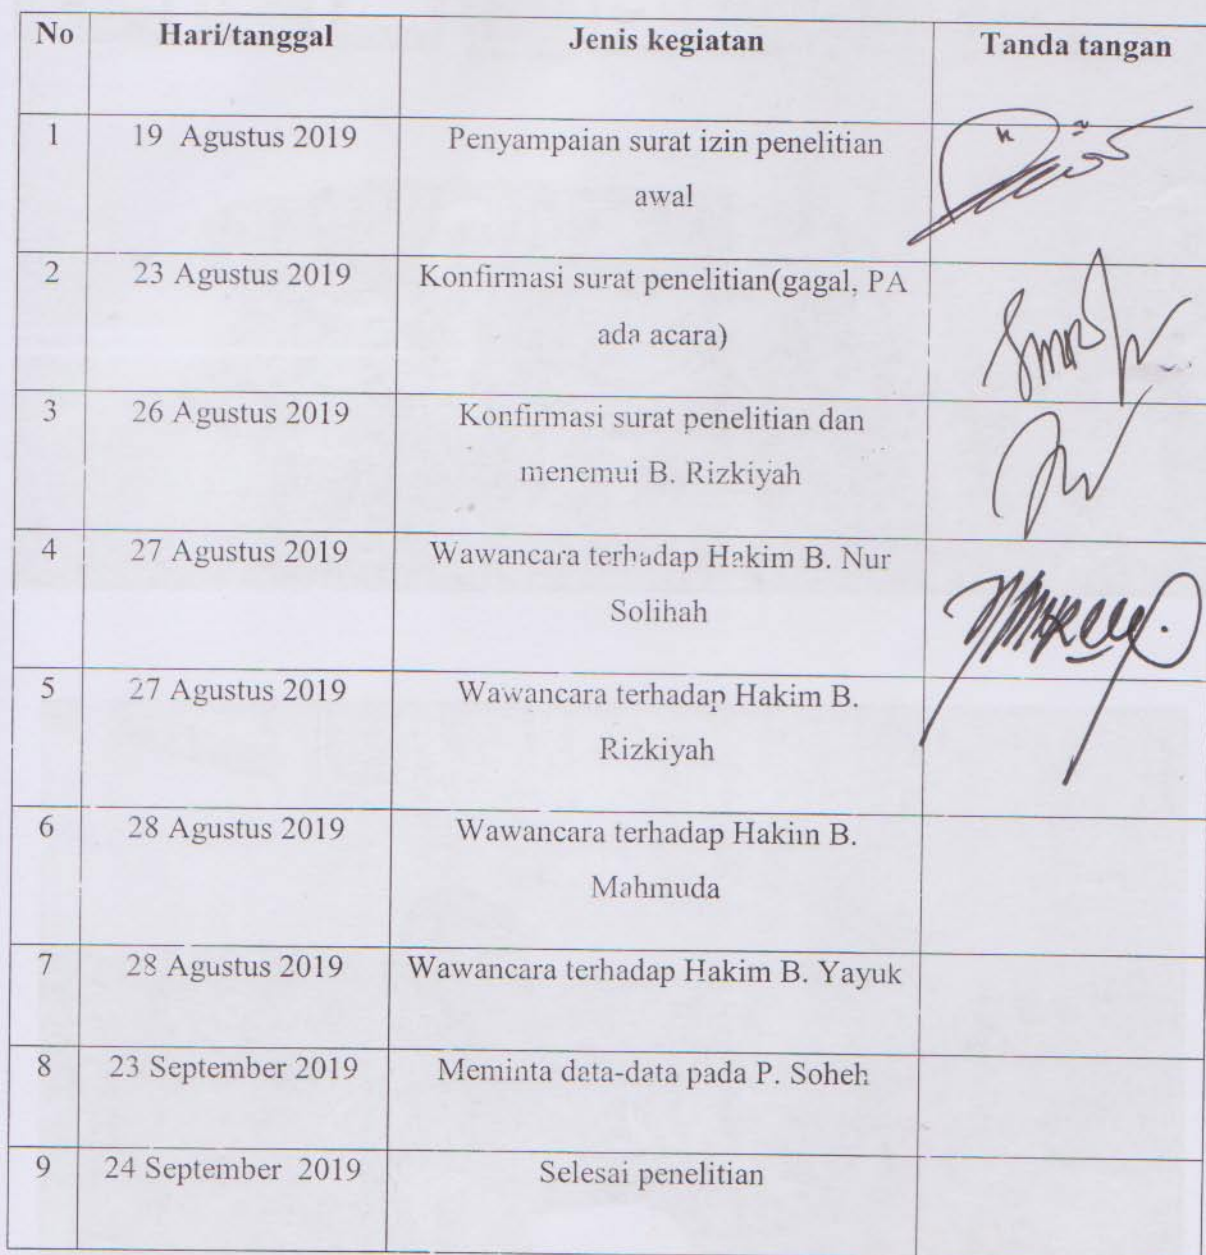 No Hari/tanggal Jenis kegiatan Tanda tangan
1 19 Agustus 2019 Penyampaian surat izin penelitian
awal
2 23 Agustus 2019 Konfirmasi surat penelitian(gagal, PA
ada acara)
3 26 Agustus 2019 Konfirmasi surat penelitian dan
menemui B. Rizkiyah
4 27 Agustus 2019 Wawancara terhadap Hakim B. Nur
Solihah
5 27 Agustus 2019 Wawancara terhadap Hakim B.
Rizkiyah
6 28 Agustus 2019 Wawancara terhadap Hakim B.
Mahmuda
7 28 Agustus 2019 Wawancara terhadap Hakim B. Yayuk
8 23 September 2019 Meminta data-data pada P. Soheh
9 24 September 2019 Selesai penelitian